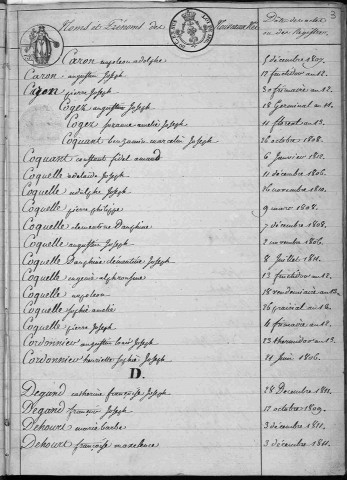 Noms et Prénoms des Nouveaux Nés
Date des actes
ou des Registres.
3
Caron napoleon adolphe 5 décembre 1807.
Caron augustin Joseph 17 fructidor an 12.
Caron pierre Joseph 3 frimaire an 12.
Coget augustin Joseph 18 Germinal an 11.
Coget suzanne amélie Joseph 11 floréal an 13.
Coquant benjamin marcelin Joseph 26 octobre 1808.
Coquant constant fidel amand 6 Janvier 1812.
Coquelle adelaide Joseph 11 décembre 1806.
Coquelle adolphe Joseph 26 novembre 1810.
Coquelle pierre philippe 9 mars 1808.
Coquelle clementine Dauphine 7 décembre 1808.
Coquelle augustin Joseph 2 novembre 1806.
Coquelle Dauphine clementine Joseph 8 Juillet 1811.
Coquelle eugenie alphonsine 13 fructidor an 12.
Coquelle napoleon 18 vendemiaire an 13.
Coquelle sophie amelie 26 prairial an 12.
Coquelle pierre Joseph 4 frimaire an 12.
Cordonnier augustin louis Joseph 23 thermidor an 13.
Cordonnier henriette sophie Joseph 21 Juin 1806.
D
Degand catherine françoise Joseph 28 Decembre 1811.
Degand françois Joseph 17 octobre 1809.
Dehourt marie barbe 3 décembre 1811.
Dehourt françoise maxelence 3 décembre 1811.